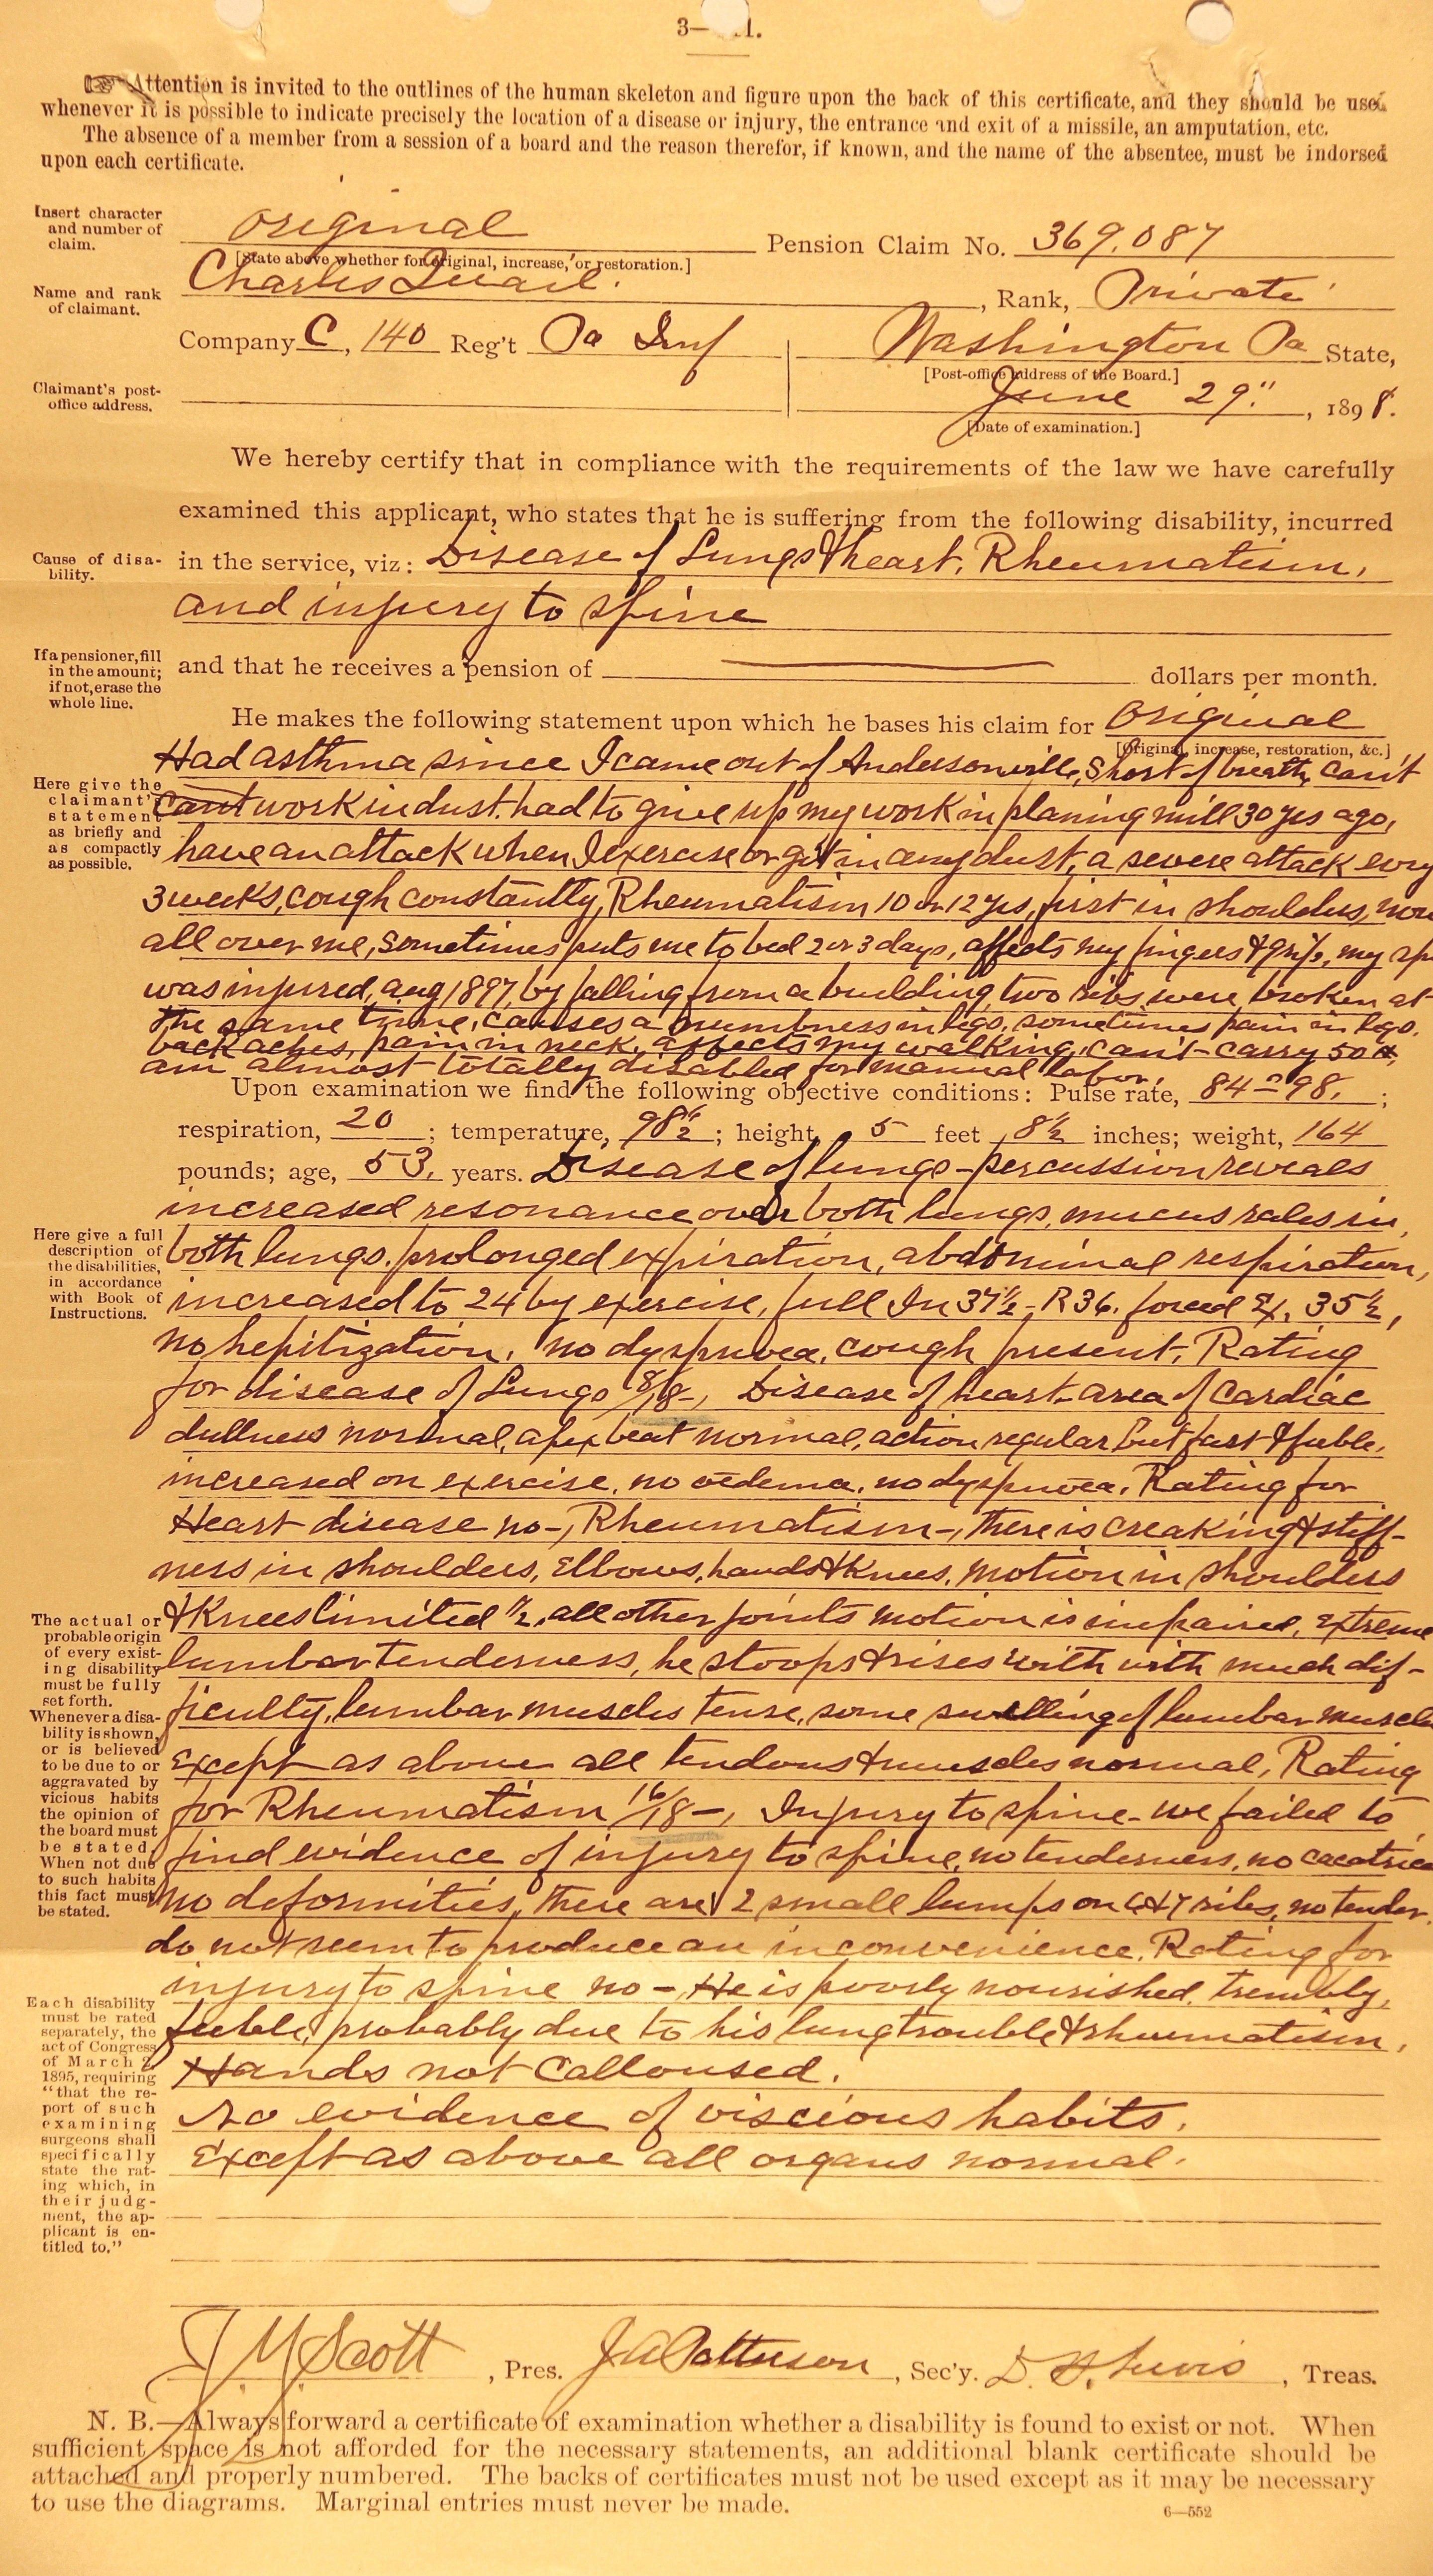 3— 1.
☞ Attention is invited to the outlines of the human skeleton and figure upon the back of this certificate, and they should be used
whenever it is possible to indicate precisely the location of a disease or injury, the entrance and exit of a missile, an amputation, etc.
The absence of a member from a session of a board and the reason therefor, if known, and the name of the absentee, must be indorsed
upon each certificate.
Insert character
and number of
claim.
Original Pension Claim No. 369.087
[State above whether for original, increase, or restoration.]
Name and rank
of claimant.
Charles Quail. , Rank, Private
Company C, 140 Reg't Pa Inf Washington Pa State,
[Post-office address of the Board.]
Claimant's post-
office address.
June 29", 1898.
[Date of examination.]
We hereby certify that in compliance with the requirements of the law we have carefully
examined this applicant, who states that he is suffering from the following disability, incurred
Cause of disa-
bility.
in the service, viz: Disease of Lungs & heart, Rheumatism,
and injury to spine
If a pensioner, fill
in the amount;
if not, erase the
whole line.
and that he receives a pension of ——— dollars per month.
He makes the following statement upon which he bases his claim for Original
[Original, increase, restoration, &c.]
Here give the
claimant's
statement
as briefly and
as compactly
as possible.
Had asthma since I came out of Andersonville, Short of breath, can't
can't work in dust. had to give up my work in planing mill 30 yrs ago,
have an attack when I exercise or git in any dust, a severe attack every
3 weeks, cough constantly, Rheumatism 10 or 12 yrs, first in shoulders, now
all over me, sometimes puts me to bed 2 or 3 days, affects my fingers & grip, my sp
was injured, aug 1897, by falling from a building, two ribs were broken at
the same time, causes a numbness in legs, sometimes pain in legs,
back aches, pain in neck, affects my walking, can't carry 50 #,
am almost totally disabled for manual labor.
Upon examination we find the following objective conditions: Pulse rate, 84-98. ;
respiration, 20 ; temperature, 98½ ; height, 5 feet 8½ inches; weight, 164
pounds; age, 53, years. Disease of lungs - percussion reveals
increased resonance over both lungs, mucus rales in
Here give a full
description of
the disabilities,
in accordance
with Book of
Instructions.
both lungs. prolonged expiration, abdominal respiration,
increased to 24 by exercise, full In 37½ - R 36. forced Ex. 35½,
no hepitization, no dyspnoea, cough present. Rating
for disease of Lungs 8/18-, Disease of heart - area of cardiac
dullness normal, apex beat normal, action regular but fast & feeble,
increased on exercise, no oedema, no dyspnoea. Rating for
Heart disease no-, Rheumatism-, there is creaking & stiff-
ness in shoulders, elbows, hands & knees, motion in shoulders
& knees limited ½, all other joints motion is impaired, extreme
lumbar tenderness, he stoops & rises with with much dif-
ficulty, lumbar muscles tense, some swelling of lumbar muscle
Except as above all tendons & muscles normal, Rating
for Rheumatism 16/18-, Injury to spine - we failed to
find evidence of injury to spine, no tenderness, no cacatrice
no deformities, there are 2 small lumps on 6 & 7 ribs, no tender.
do not seem to produce an inconvenience. Rating for
injury to spine no - He is poorly nourished, trembly,
feeble, probably due to his lung trouble & rheumatism,
Hands not calloused.
No evidence of viscious habits.
Except as above all organs normal.
The actual or
probable origin
of every exist-
ing disability
must be fully
set forth.
Whenever a disa-
bility is shown,
or is believed
to be due to or
aggravated by
vicious habits
the opinion of
the board must
be stated.
When not due
to such habits
this fact must
be stated.
Each disability
must be rated
separately, the
act of Congress
of March 2,
1895, requiring
"that the re-
port of such
examining
surgeons shall
specifically
state the rat-
ing which, in
their judg-
ment, the ap-
plicant is en-
titled to."
J. M. Scott , Pres. J A Patterson , Sec'y. D. H. Lewis , Treas.
N. B.—Always forward a certificate of examination whether a disability is found to exist or not. When
sufficient space is not afforded for the necessary statements, an additional blank certificate should be
attached and properly numbered. The backs of certificates must not be used except as it may be necessary
to use the diagrams. Marginal entries must never be made.
6—552